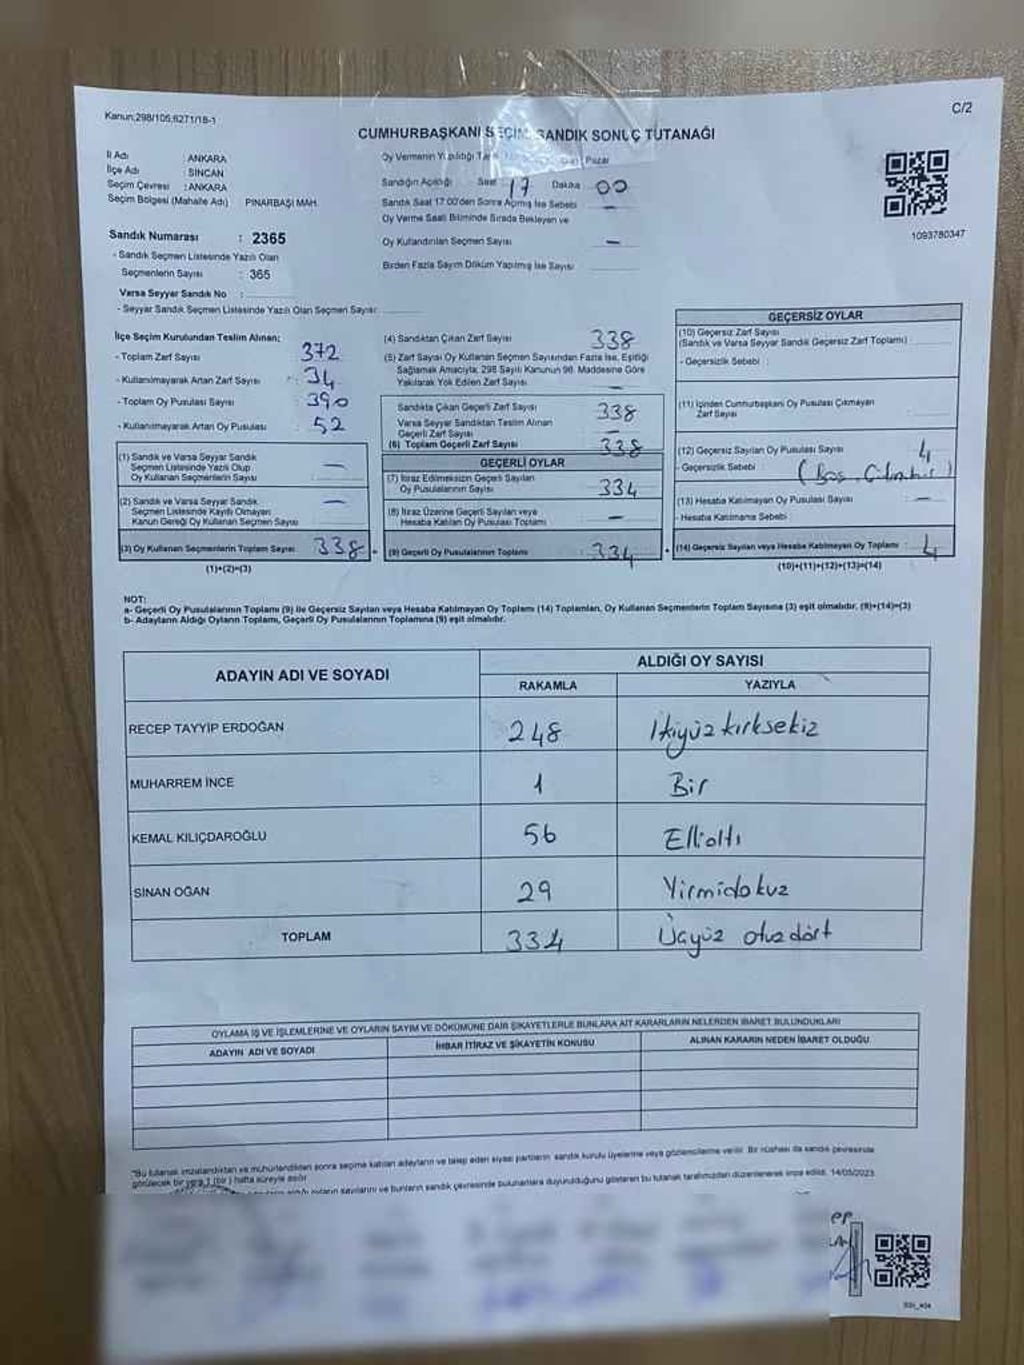 Kanun;298/105,6271/18-1
C/2
CUMHURBAŞKANI SEÇİMİ SANDIK SONUÇ TUTANAĞI
İl Adı : ANKARA
İlçe Adı : SİNCAN
Seçim Çevresi : ANKARA
Seçim Bölgesi (Mahalle Adı) PINARBAŞI MAH.
Oy Vermenin Yapıldığı Pazar
Sandığın Açıldığı Saat 17 Dakika 00
Sandık Saat 17:00'den Sonra Açılmış İse Sebebi : —
Oy Verme Saati Bitiminde Sırada Bekleyen ve
Oy Kullandırılan Seçmen Sayısı —
Birden Fazla Sayım Döküm Yapılmış İse Sayısı
1093780347
Sandık Numarası : 2365
- Sandık Seçmen Listesinde Yazılı Olan
Seçmenlerin Sayısı : 365
Varsa Seyyar Sandık No :
- Seyyar Sandık Seçmen Listesinde Yazılı Olan Seçmen Sayısı:
İlçe Seçim Kurulundan Teslim Alınan;
- Toplam Zarf Sayısı 372
- Kullanılmayarak Artan Zarf Sayısı : 34
- Toplam Oy Pusulası Sayısı : 390
- Kullanılmayarak Artan Oy Pusulası : 52
(1) Sandık ve Varsa Seyyar Sandık
Seçmen Listesinde Yazılı Olup
Oy Kullanan Seçmenlerin Sayısı —
(2) Sandık ve Varsa Seyyar Sandık
Seçmen Listesinde Kayıtlı Olmayan
Kanun Gereği Oy Kullanan Seçmen Sayısı —
(3) Oy Kullanan Seçmenlerin Toplam Sayısı 338
(1)+(2)=(3)
(4) Sandıktan Çıkan Zarf Sayısı 338
(5) Zarf Sayısı Oy Kullanan Seçmen Sayısından Fazla İse, Eşitliği
Sağlamak Amacıyla, 298 Sayılı Kanunun 98. Maddesine Göre
Yakılarak Yok Edilen Zarf Sayısı —
Sandıkta Çıkan Geçerli Zarf Sayısı 338
Varsa Seyyar Sandıktan Teslim Alınan
Geçerli Zarf Sayısı —
(6) Toplam Geçerli Zarf Sayısı 338
GEÇERLİ OYLAR
(7) İtiraz Edilmeksizin Geçerli Sayılan
Oy Pusulalarının Sayısı 334
(8) İtiraz Üzerine Geçerli Sayılan veya
Hesaba Katılan Oy Pusulası Toplamı —
(9) Geçerli Oy Pusulalarının Toplamı : 334
GEÇERSİZ OYLAR
(10) Geçersiz Zarf Sayısı
(Sandık ve Varsa Seyyar Sandık Geçersiz Zarf Toplamı) :
- Geçersizlik Sebebi :
(11) İçinden Cumhurbaşkanı Oy Pusulası Çıkmayan
Zarf Sayısı
(12) Geçersiz Sayılan Oy Pusulası Sayısı 4
- Geçersizlik Sebebi (Boş
(13) Hesaba Katılmayan Oy Pusulası Sayısı —
- Hesaba Katılmama Sebebi :
(14) Geçersiz Sayılan veya Hesaba Katılmayan Oy Toplamı : 4
(10)+(11)+(12)+(13)=(14)
NOT:
a- Geçerli Oy Pusulalarının Toplamı (9) ile Geçersiz Sayılan veya Hesaba Katılmayan Oy Toplamı (14) Toplamları, Oy Kullanan Seçmenlerin Toplam Sayısına (3) eşit olmalıdır. (9)+(14)=(3)
b- Adayların Aldığı Oyların Toplamı, Geçerli Oy Pusulalarının Toplamına (9) eşit olmalıdır.
ADAYIN ADI VE SOYADI
ALDIĞI OY SAYISI
RAKAMLA YAZIYLA
RECEP TAYYİP ERDOĞAN 248 İkiyüz kırksekiz
MUHARREM İNCE 1 Bir
KEMAL KILIÇDAROĞLU 56 Ellialtı
SİNAN OĞAN 29 Yirmidokuz
TOPLAM 334 Üçyüz otuzdört
OYLAMA İŞ VE İŞLEMLERİNE VE OYLARIN SAYIM VE DÖKÜMÜNE DAİR ŞİKAYETLERLE BUNLARA AİT KARARLARIN NELERDEN İBARET BULUNDUKLARI
ADAYIN ADI VE SOYADI İHBAR İTİRAZ VE ŞİKAYETİN KONUSU ALINAN KARARIN NEDEN İBARET OLDUĞU
"Bu tutanak imzalandıktan ve mühürlendikten sonra seçime katılan adayların ve talep eden siyasi partilerin sandık kurulu üyelerine veya gözlemcilerine verilir. Bir nüshası da sandık çevresinde
görülecek bir yere 1 (bir) hafta süreyle asılır.
oyların sayılarını ve bunların sandık çevresinde bulunanlara duyurulduğunu gösteren bu tutanak tarafımızdan düzenlenerek imza edildi. 14/05/2023